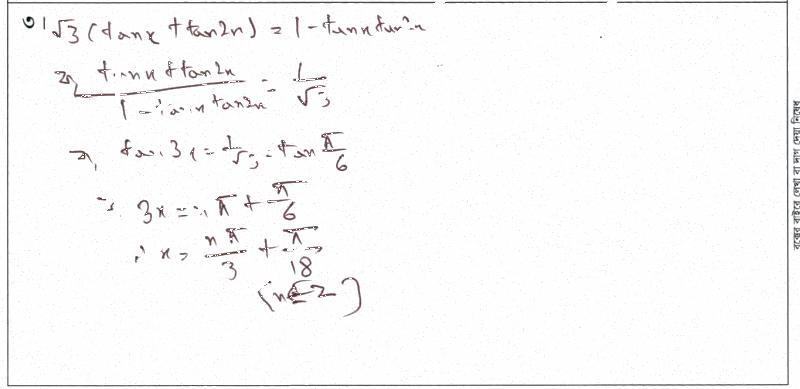 ৩। √3 (tanx + tan2x) = 1 - tanx tan2x
বা, (tanx + tan2x)/(1 - tanx tan2x) = 1/√3
বা, tan3x = 1/√3 = tan π/6
∴ 3x = nπ + π/6
∴ x = nπ/3 + π/18
(n∈Z)